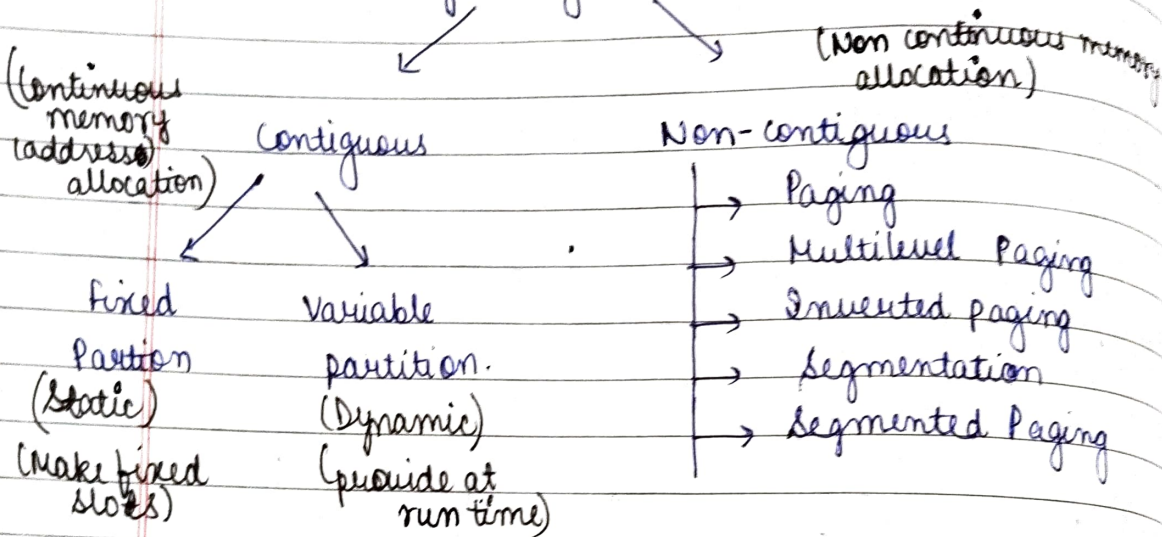 (Non continuous memory
allocation)
(Continuous
memory
(address)
allocation)
Contiguous
Non-contiguous
Fixed
Partion
(Static)
(Make fixed
slots)
Variable
partition.
(Dynamic)
(provide at
run time)
Paging
Multilevel Paging
Inverted paging
Segmentation
Segmented Paging